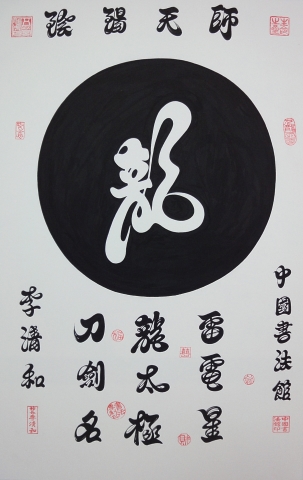 師天陽陰
龍
雷電星
龍太極
刀劍名
中國書法館
李濤和